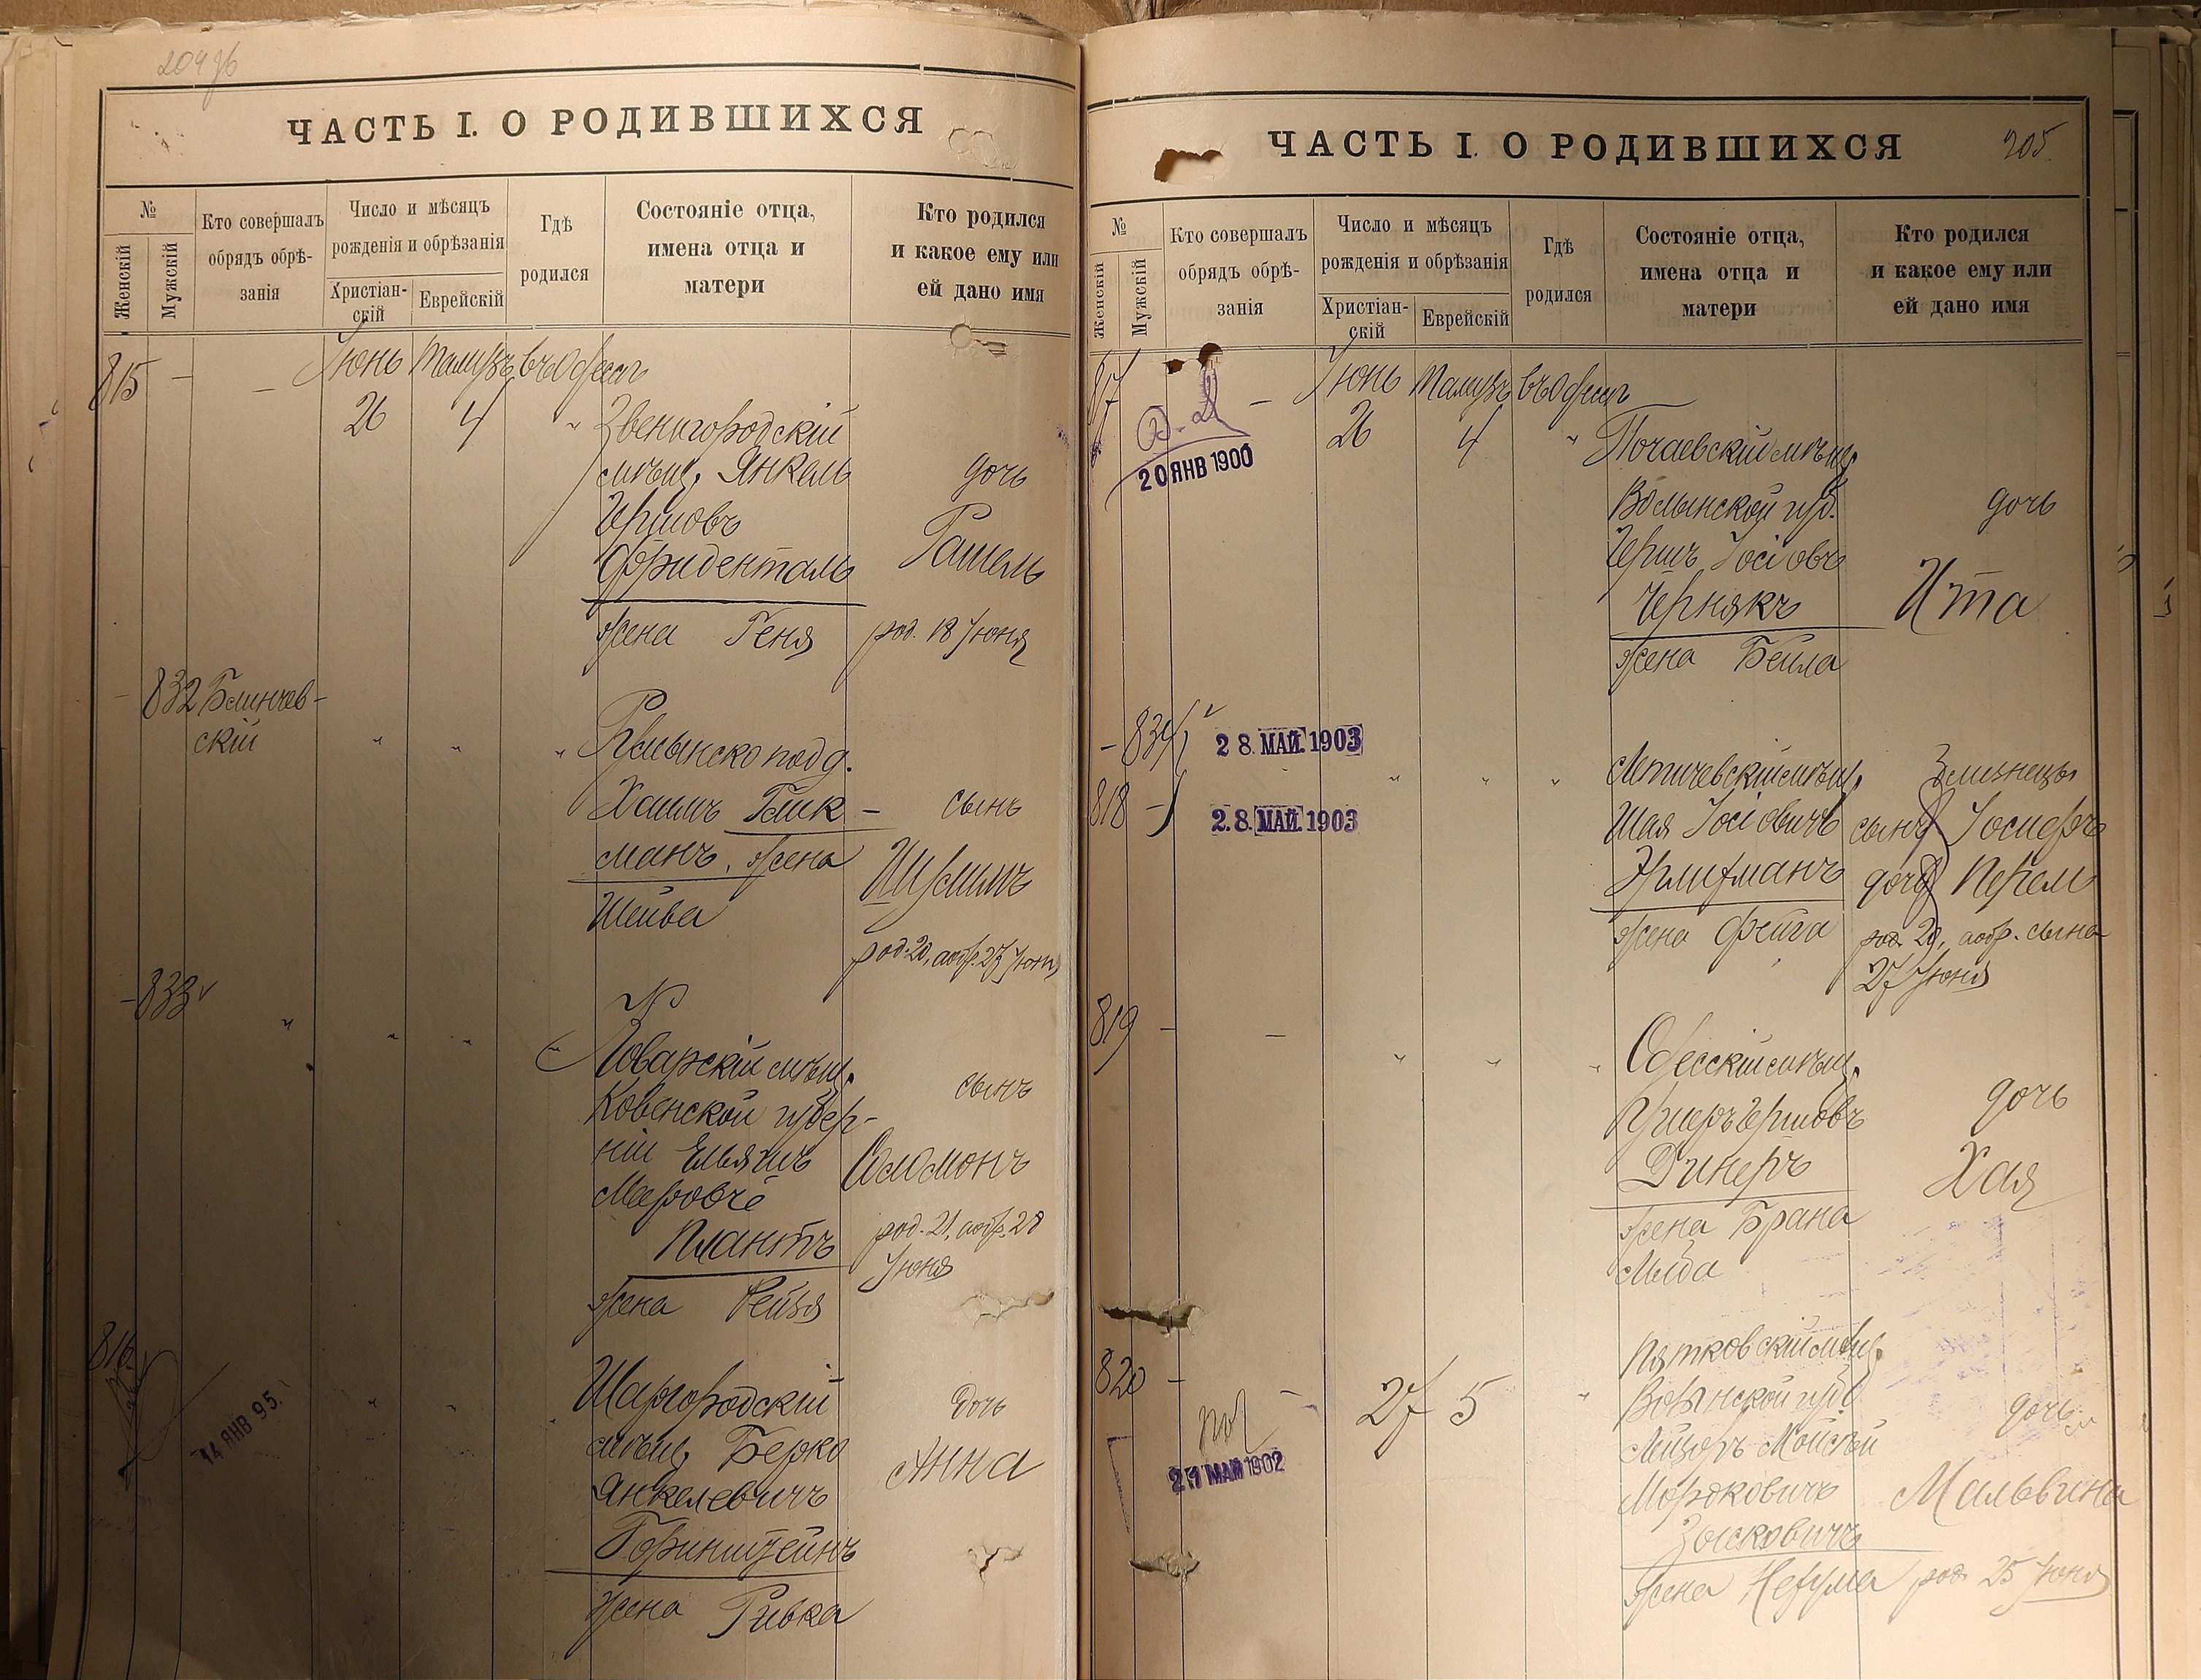 204 об
ЧАСТЬ I. О РОДИВШИХСЯ
№
Женскій
Мужскій
Кто совершалъ
обрядъ обрѣ-
занія
Число и мѣсяцъ
рожденія и обрѣзанія
Христіан-
скій
Еврейскій
Гдѣ
родился
Состояніе отца,
имена отца и
матери
Кто родился
и какое ему или
ей дано имя
815 — — Іюнь Тамузъ въ Одессѣ
26 4 " Звенигородскій
мѣщ. Янкель
Гершовъ
Фриденталь
жена Геня
дочь
Рашель
род. 18 Іюня
— 832 Блинчев-
скій " " "
Румынско подд.
Хаимъ Глик-
манъ, жена
Шейва
сынъ
Шулимъ
род. 20, а обр. 27 Іюня
— 833 " " "
Поварскій мѣщ.
Ковенской губер-
ніи Ельяшъ
Меровъ
Плантъ
жена Рейзя
сынъ
Соломонъ
род. 21, а обр. 28
Іюня
816
14 ЯНВ 95.
" "
Шаргородскій
мѣщ. Берко
Янкелевичъ
Горинштейнъ
жена Ривка
дочь
Анна
ЧАСТЬ I. О РОДИВШИХСЯ
205.
№
Женскій
Мужскій
Кто совершалъ
обрядъ обрѣ-
занія
Число и мѣсяцъ
рожденія и обрѣзанія
Христіан-
скій
Еврейскій
Гдѣ
родился
Состояніе отца,
имена отца и
матери
Кто родился
и какое ему или
ей дано имя
817 — Іюнь Тамузъ въ Одессѣ
20 ЯНВ 1900
26 4 "
Почаевскій мѣщ.
Волынской губ.
Гершъ Іосіовъ
Чернякъ
жена Бейла
дочь
Ита
— 834
28. МАЙ. 1903
818 —
28. МАЙ. 1903
" " "
Летичевскій мѣщ.
Шая Іосіовичъ
Эрлихманъ
жена Фейга
Близнецы
сынъ Іосифъ
дочь Перель
род. 20, а обр. сына
27 Іюня
819 — — " " "
Одесскій мѣщ.
Ушеръ Гершовъ
Динеръ
жена Брана
Мида
дочь
Хая
820 — — 27 5 "
21 МАЙ 1902
Пятковскій мѣщ.
Волынской губ.
Лейзоръ-Мойсей
Мордковичъ
Зысковичъ
жена Нехума
дочь
Мальвина
род. 25 Іюня